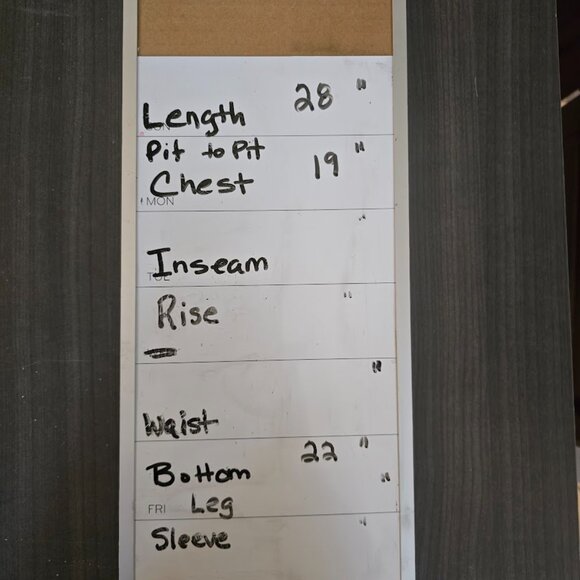 Length 28 "
Pit to Pit
Chest 19 "
MON
"
Inseam
Rise "
"
Waist
22 "
Bottom "
FRI Leg
"
Sleeve